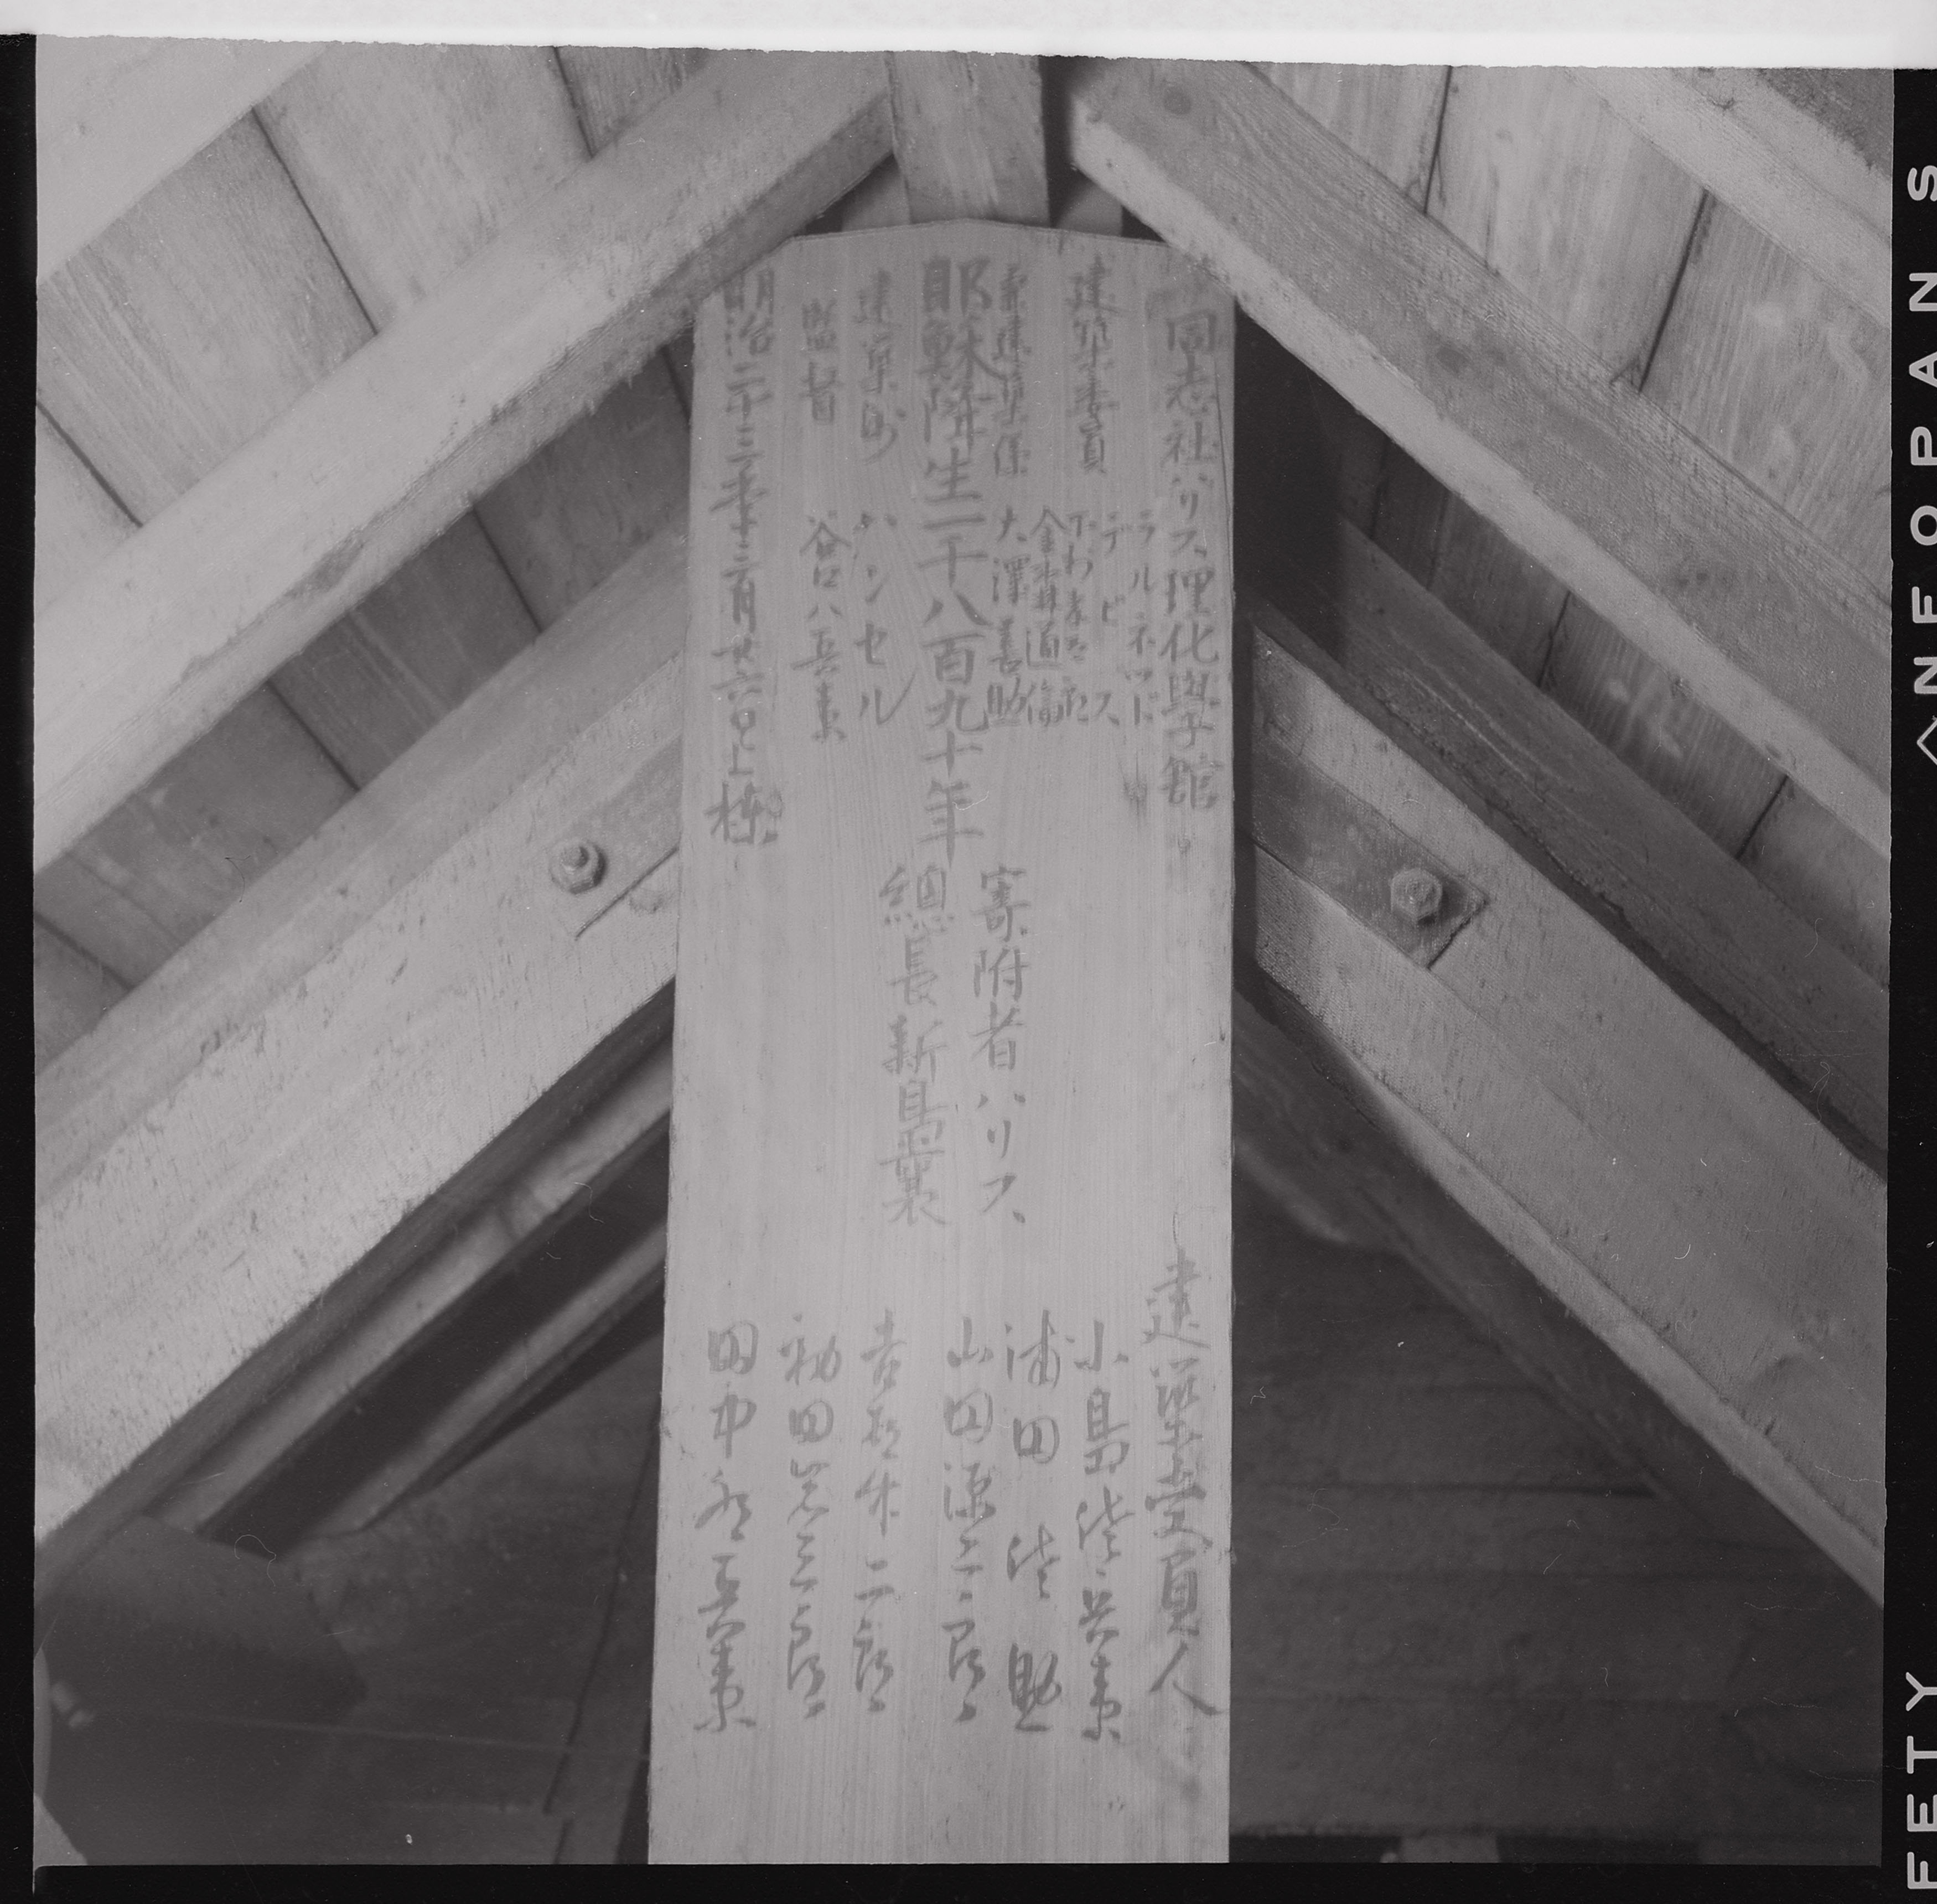 同志社ハリス理化學館
建築委員
ラルネッド
デビス
下村孝太郎
金森通倫
兼建築係
大澤善助
耶蘇降生一千八百九十年
建築師
ハンセル
監督
谷口八兵衛
明治二十三年
上棟
寄附者ハリス
總長新島襄
建築受負人
小島
兵衛
浦田
助
山田源三郎
二郎
田中
兵衛
NEOPAN S
FETY